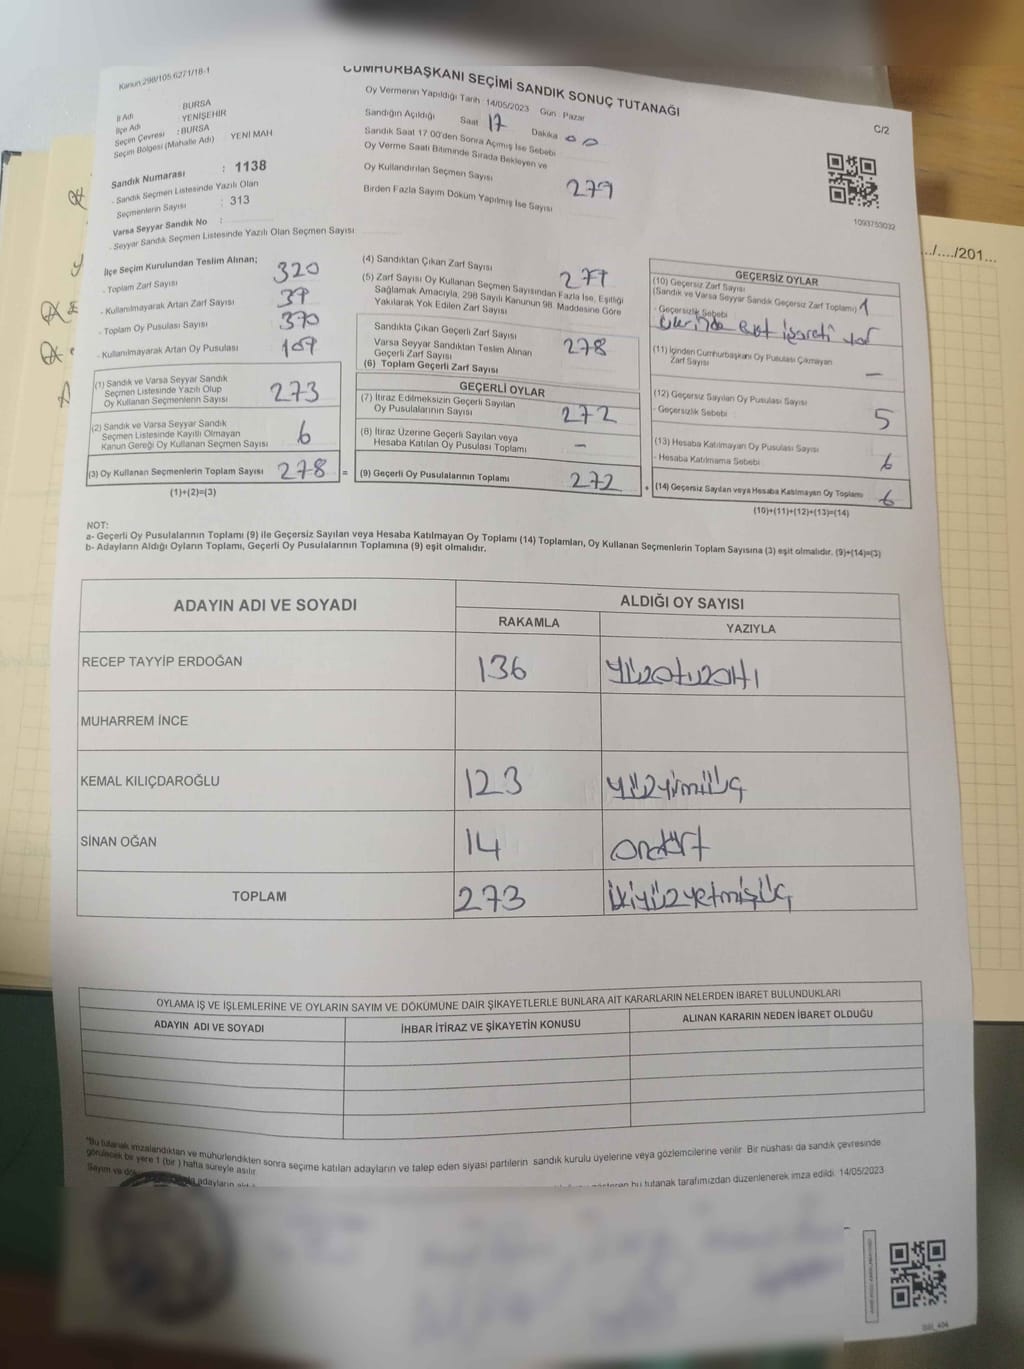 Kanun:298/105.6271/18-1
CUMHURBAŞKANI SEÇİMİ SANDIK SONUÇ TUTANAĞI
C/2
İl Adı BURSA
İlçe Adı YENİŞEHİR
Seçim Çevresi : BURSA
Seçim Bölgesi (Mahalle Adı) YENİ MAH
Sandık Numarası : 1138
Sandık Seçmen Listesinde Yazılı Olan
Seçmenlerin Sayısı : 313
Varsa Seyyar Sandık No :
Seyyar Sandık Seçmen Listesinde Yazılı Olan Seçmen Sayısı
Oy Vermenin Yapıldığı Tarih : 14/05/2023 Gün : Pazar
Sandığın Açıldığı Saat 17 Dakika 00
Sandık Saat 17:00'den Sonra Açılmış İse Sebebi
Oy Verme Saati Bitiminde Sırada Bekleyen ve
Oy Kullandırılan Seçmen Sayısı
279
Birden Fazla Sayım Döküm Yapılmış İse Sayısı
1093753032
../..../201...
İlçe Seçim Kurulundan Teslim Alınan;
- Toplam Zarf Sayısı 320
- Kullanılmayarak Artan Zarf Sayısı 39
- Toplam Oy Pusulası Sayısı 370
- Kullanılmayarak Artan Oy Pusulası 109
(1) Sandık ve Varsa Seyyar Sandık
Seçmen Listesinde Yazılı Olup
Oy Kullanan Seçmenlerin Sayısı 273
(2) Sandık ve Varsa Seyyar Sandık
Seçmen Listesinde Kayıtlı Olmayan
Kanun Gereği Oy Kullanan Seçmen Sayısı 6
(3) Oy Kullanan Seçmenlerin Toplam Sayısı 278 =
(1)+(2)=(3)
(4) Sandıktan Çıkan Zarf Sayısı 279
(5) Zarf Sayısı Oy Kullanan Seçmen Sayısından Fazla İse, Eşitliği
Sağlamak Amacıyla, 298 Sayılı Kanunun 98. Maddesine Göre
Yakılarak Yok Edilen Zarf Sayısı
Sandıkta Çıkan Geçerli Zarf Sayısı
Varsa Seyyar Sandıktan Teslim Alınan
Geçerli Zarf Sayısı 278
(6) Toplam Geçerli Zarf Sayısı
GEÇERLİ OYLAR
(7) İtiraz Edilmeksizin Geçerli Sayılan
Oy Pusulalarının Sayısı 272
(8) İtiraz Üzerine Geçerli Sayılan veya
Hesaba Katılan Oy Pusulası Toplamı -
(9) Geçerli Oy Pusulalarının Toplamı 272 +
GEÇERSİZ OYLAR
(10) Geçersiz Zarf Sayısı
(Sandık ve Varsa Seyyar Sandık Geçersiz Zarf Toplamı) 1
- Geçersizlik Sebebi
üzerinde evet işareti var
(11) İçinden Cumhurbaşkanı Oy Pusulası Çıkmayan
Zarf Sayısı -
(12) Geçersiz Sayılan Oy Pusulası Sayısı 5
- Geçersizlik Sebebi
(13) Hesaba Katılmayan Oy Pusulası Sayısı
- Hesaba Katılmama Sebebi 6
(14) Geçersiz Sayılan veya Hesaba Katılmayan Oy Toplamı 6
(10)+(11)+(12)+(13)=(14)
NOT:
a- Geçerli Oy Pusulalarının Toplamı (9) ile Geçersiz Sayılan veya Hesaba Katılmayan Oy Toplamı (14) Toplamları, Oy Kullanan Seçmenlerin Toplam Sayısına (3) eşit olmalıdır. (9)+(14)=(3)
b- Adayların Aldığı Oyların Toplamı, Geçerli Oy Pusulalarının Toplamına (9) eşit olmalıdır.
ADAYIN ADI VE SOYADI ALDIĞI OY SAYISI
RAKAMLA YAZIYLA
RECEP TAYYİP ERDOĞAN 136 yüzotuzaltı
MUHARREM İNCE
KEMAL KILIÇDAROĞLU 123 yüzyirmiüç
SİNAN OĞAN 14 ondört
TOPLAM 273 ikiyüzyetmişüç
OYLAMA İŞ VE İŞLEMLERİNE VE OYLARIN SAYIM VE DÖKÜMÜNE DAİR ŞİKAYETLERLE BUNLARA AİT KARARLARIN NELERDEN İBARET BULUNDUKLARI
ADAYIN ADI VE SOYADI İHBAR İTİRAZ VE ŞİKAYETİN KONUSU ALINAN KARARIN NEDEN İBARET OLDUĞU
"Bu tutanak imzalandıktan ve mühürlendikten sonra seçime katılan adayların ve talep eden siyasi partilerin sandık kurulu üyelerine veya gözlemcilerine verilir. Bir nüshası da sandık çevresinde
görülecek bir yere 1 (bir) hafta süreyle asılır.
Sayım ve adayların bu tutanak tarafımızdan düzenlenerek imza edildi. 14/05/2023